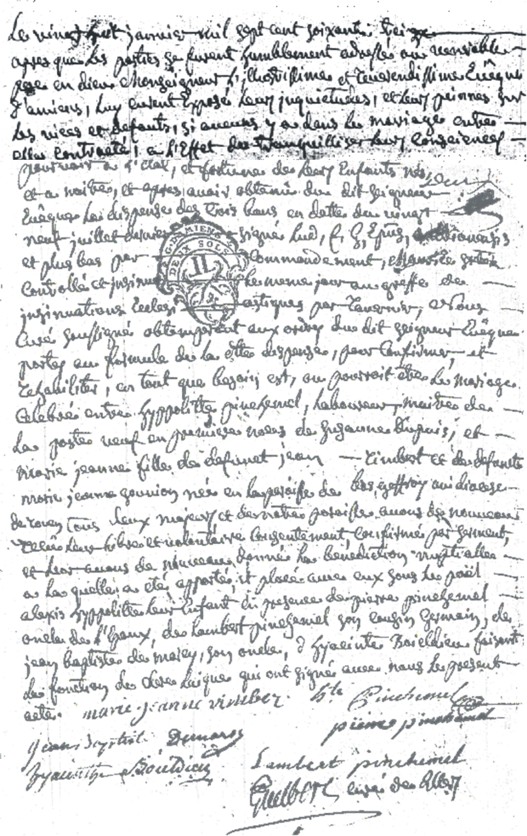 Le vingt huit janvier mil sept cent soixante treize
apres que les parties se furent humblement adressés au venerable
pere en dieu Monseigneur l'illustrissime et reverendissime Evêque
d'amiens, luy eurent exposé leurs inquietudes, et leurs peines sur
les vices et defauts, si aucuns y a dans le mariage entre
elles contracté; a l'Effet de tranquilliser leurs consciences
pourvoir a l'etat, et fortune de leurs Enfants nés
et a naitre, et apres avoir obtenu du dit seigneur
Evêque la dispense des trois bans en datte du vingt
neuf juillet dernier signée Lud, f. G. Epus,
et plus bas par Commandement,
Controllée et insinuée le meme jour au greffe des
insinuations Eccles astiques par Tavernier, Nous
Curé soussigné obtemperant aux ordres du dit seigneur Evêque
portes au formule de la ditte dispense, pour Confirmer et
Rehabiliter, en tant que besoin est, ou pourroit être le mariage
Celebré entre hyppolitte pinchemel, laboureur, maitre de
la poste veuf en premieres noces de Suzanne Dupuis, et
marie jeanne fille de defunct jean Rimbert et de defunte
marie jeanne gouvion née en la paroisse de geffroy au diocese
de rouen tous deux majeurs et de notre paroisse, avons de nouveau
leur libre et volontaire Consentement, Confirmé par serment,
et leur avons de nouveau donné la benediction nuptialle
a la quelle a été apporté, et placé avec eux sous le poël
alexis hyppolitte leur Enfant En presence de pierre pinchemel
oncle de l'Epoux, de Lambert pinchemel son cousin Germain, de
jean baptiste de marcy, son oncle, d'hyacinte Boieldieu faisant
les fonction de Clerc laique qui ont signé avec nous le present
acte. marie jeanne rimber hte Pinchemel
pierre pinchemel
jean Baptiste Demarcy
hyacinthe Boieldieu
Lambert pinchemel
curé